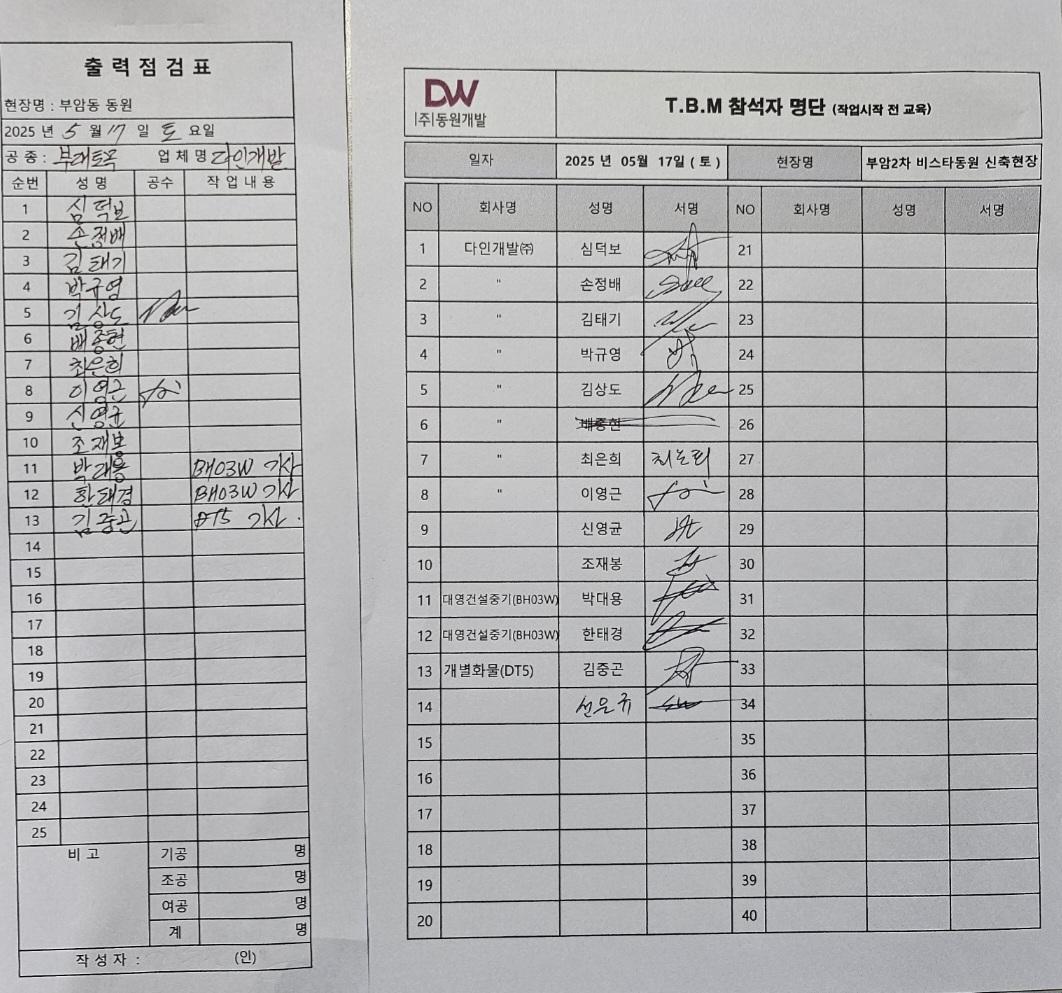 출 력 점 검 표
현장명 : 부암동 동원
2025 년 5 월 17 일 토 요일
공 종 : 부대토목 업 체 명 다인개발
순번 성 명 공수 작 업 내 용
1 심덕보
2 손정배
3 김태기
4 박규영
5 김상도
6 배종현
7 최은희
8 이영근
9 신영균
10 조재봉
11 박대용 BH03W 기사
12 한태경 BH03W 기사
13 김중곤 DT5 기사.
14
15
16
17
18
19
20
21
22
23
24
25
비 고 기공 명
조공 명
여공 명
계 명
작 성 자 : (인)
DW
(주)동원개발
T.B.M 참석자 명단 (작업시작 전 교육)
일자 2025 년 05월 17일 ( 토 ) 현장명 부암2차 비스타동원 신축현장
NO 회사명 성명 서명 NO 회사명 성명 서명
1 다인개발㈜ 심덕보 21
2 " 손정배 22
3 " 김태기 23
4 " 박규영 24
5 " 김상도 25
6 " 배종현 26
7 " 최은희 최은희 27
8 " 이영근 28
9 신영균 29
10 조재봉 30
11 대영건설중기(BH03W) 박대용 31
12 대영건설중기(BH03W) 한태경 32
13 개별화물(DT5) 김중곤 33
14 선은규 34
15 35
16 36
17 37
18 38
19 39
20 40